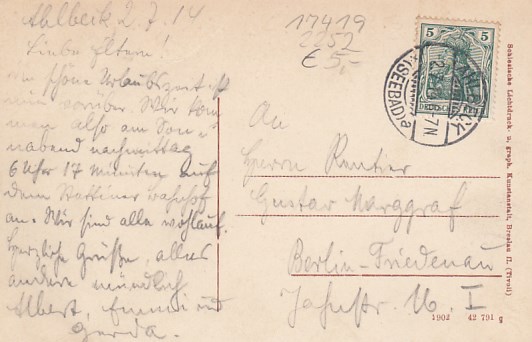 Ahlbeck 2.7.14
Liebe Eltern!
schöne Urlaubszeit ist
nun vorbei Wir kom
men also am Sonn-
abend nachmittag
6 Uhr 17 Minuten auf
dem Stettiner Bahnhof
an. Wir sind alle wohlauf.
Herzliche Grüße, alles
andere mündlich
Albert, Emmi und
Gerda.
17419
2252
€ 5,-
5
5
DEUTSCHES REICH
(SEEBAD)
a
7N
An
Herrn Rentier
Gustav Marggraf
Berlin-Friedenau
Jahnstr. 16. I
1902 42 791 g
Schlesische Lichtdruck- u. graph. Kunstanstalt, Breslau II. (Tivoli)